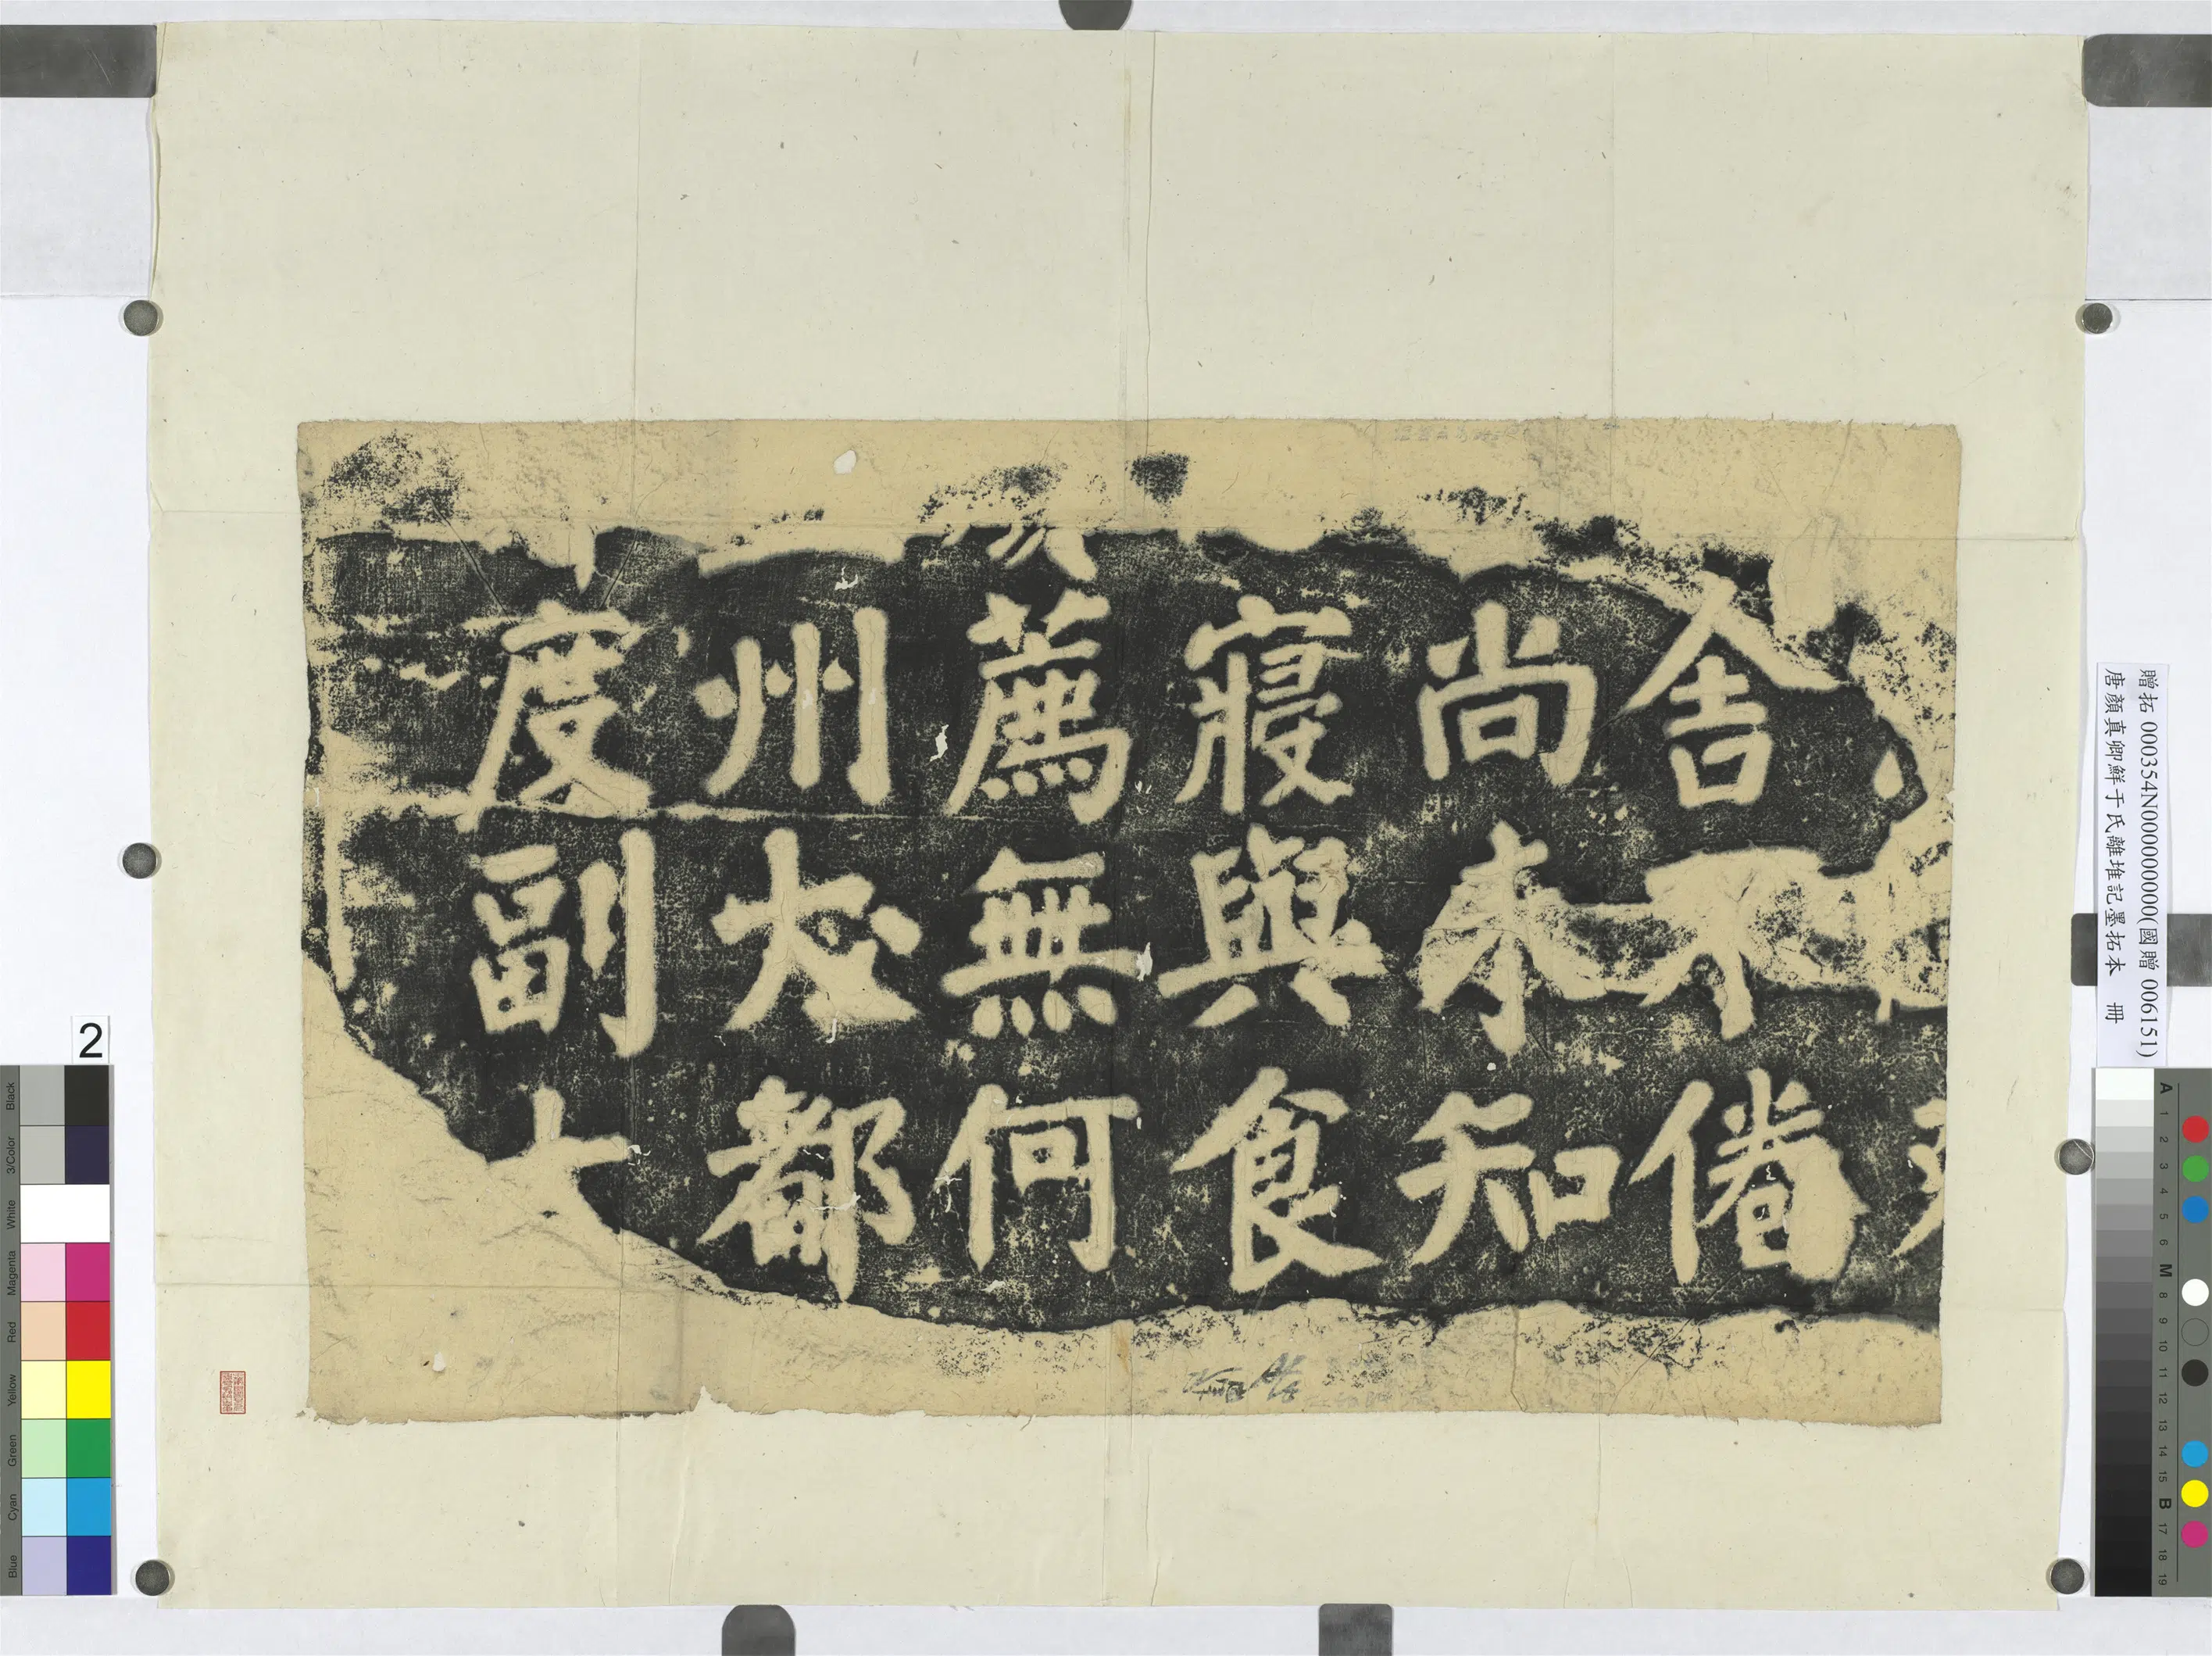 舍不倦
尚未知
寢與食
薦無何
州大都
度副大
贈拓 000354N000000000(國贈 006151)
唐顏真卿鮮于氏離堆記墨拓本 冊
2
Black
3/Color
White
Magenta
Red
Yellow
Green
Cyan
Blue
A 1 2 3 4 5 6 M 8 9 10 11 12 13 14 15 B 17 18 19